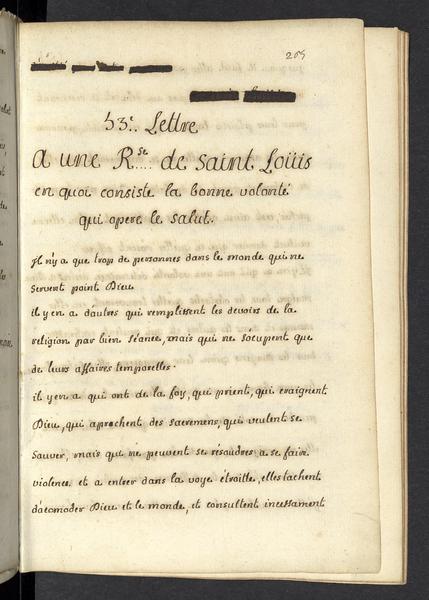 205
53e. Lettre
A une Rse.... de saint Loüis
en quoi consiste la bonne volonté
qui opere le salut.
Il n'y a que trop de personnes dans le monde qui ne
servent point Dieu
il y en a d'autres qui remplissent les devoirs de la
religion par bien séance, mais qui ne s'ocupent que
de leurs affaires temporelles.
il y en a qui ont de la foy, qui prient, qui craignent
Dieu, qui aprochent des sacremens, qui veulent se
sauver, mais qui ne peuvent se résoudres a se faire
violence et a entrer dans la voye étroitte, elles tachent
d'acomoder Dieu et le monde, et consultent incessament